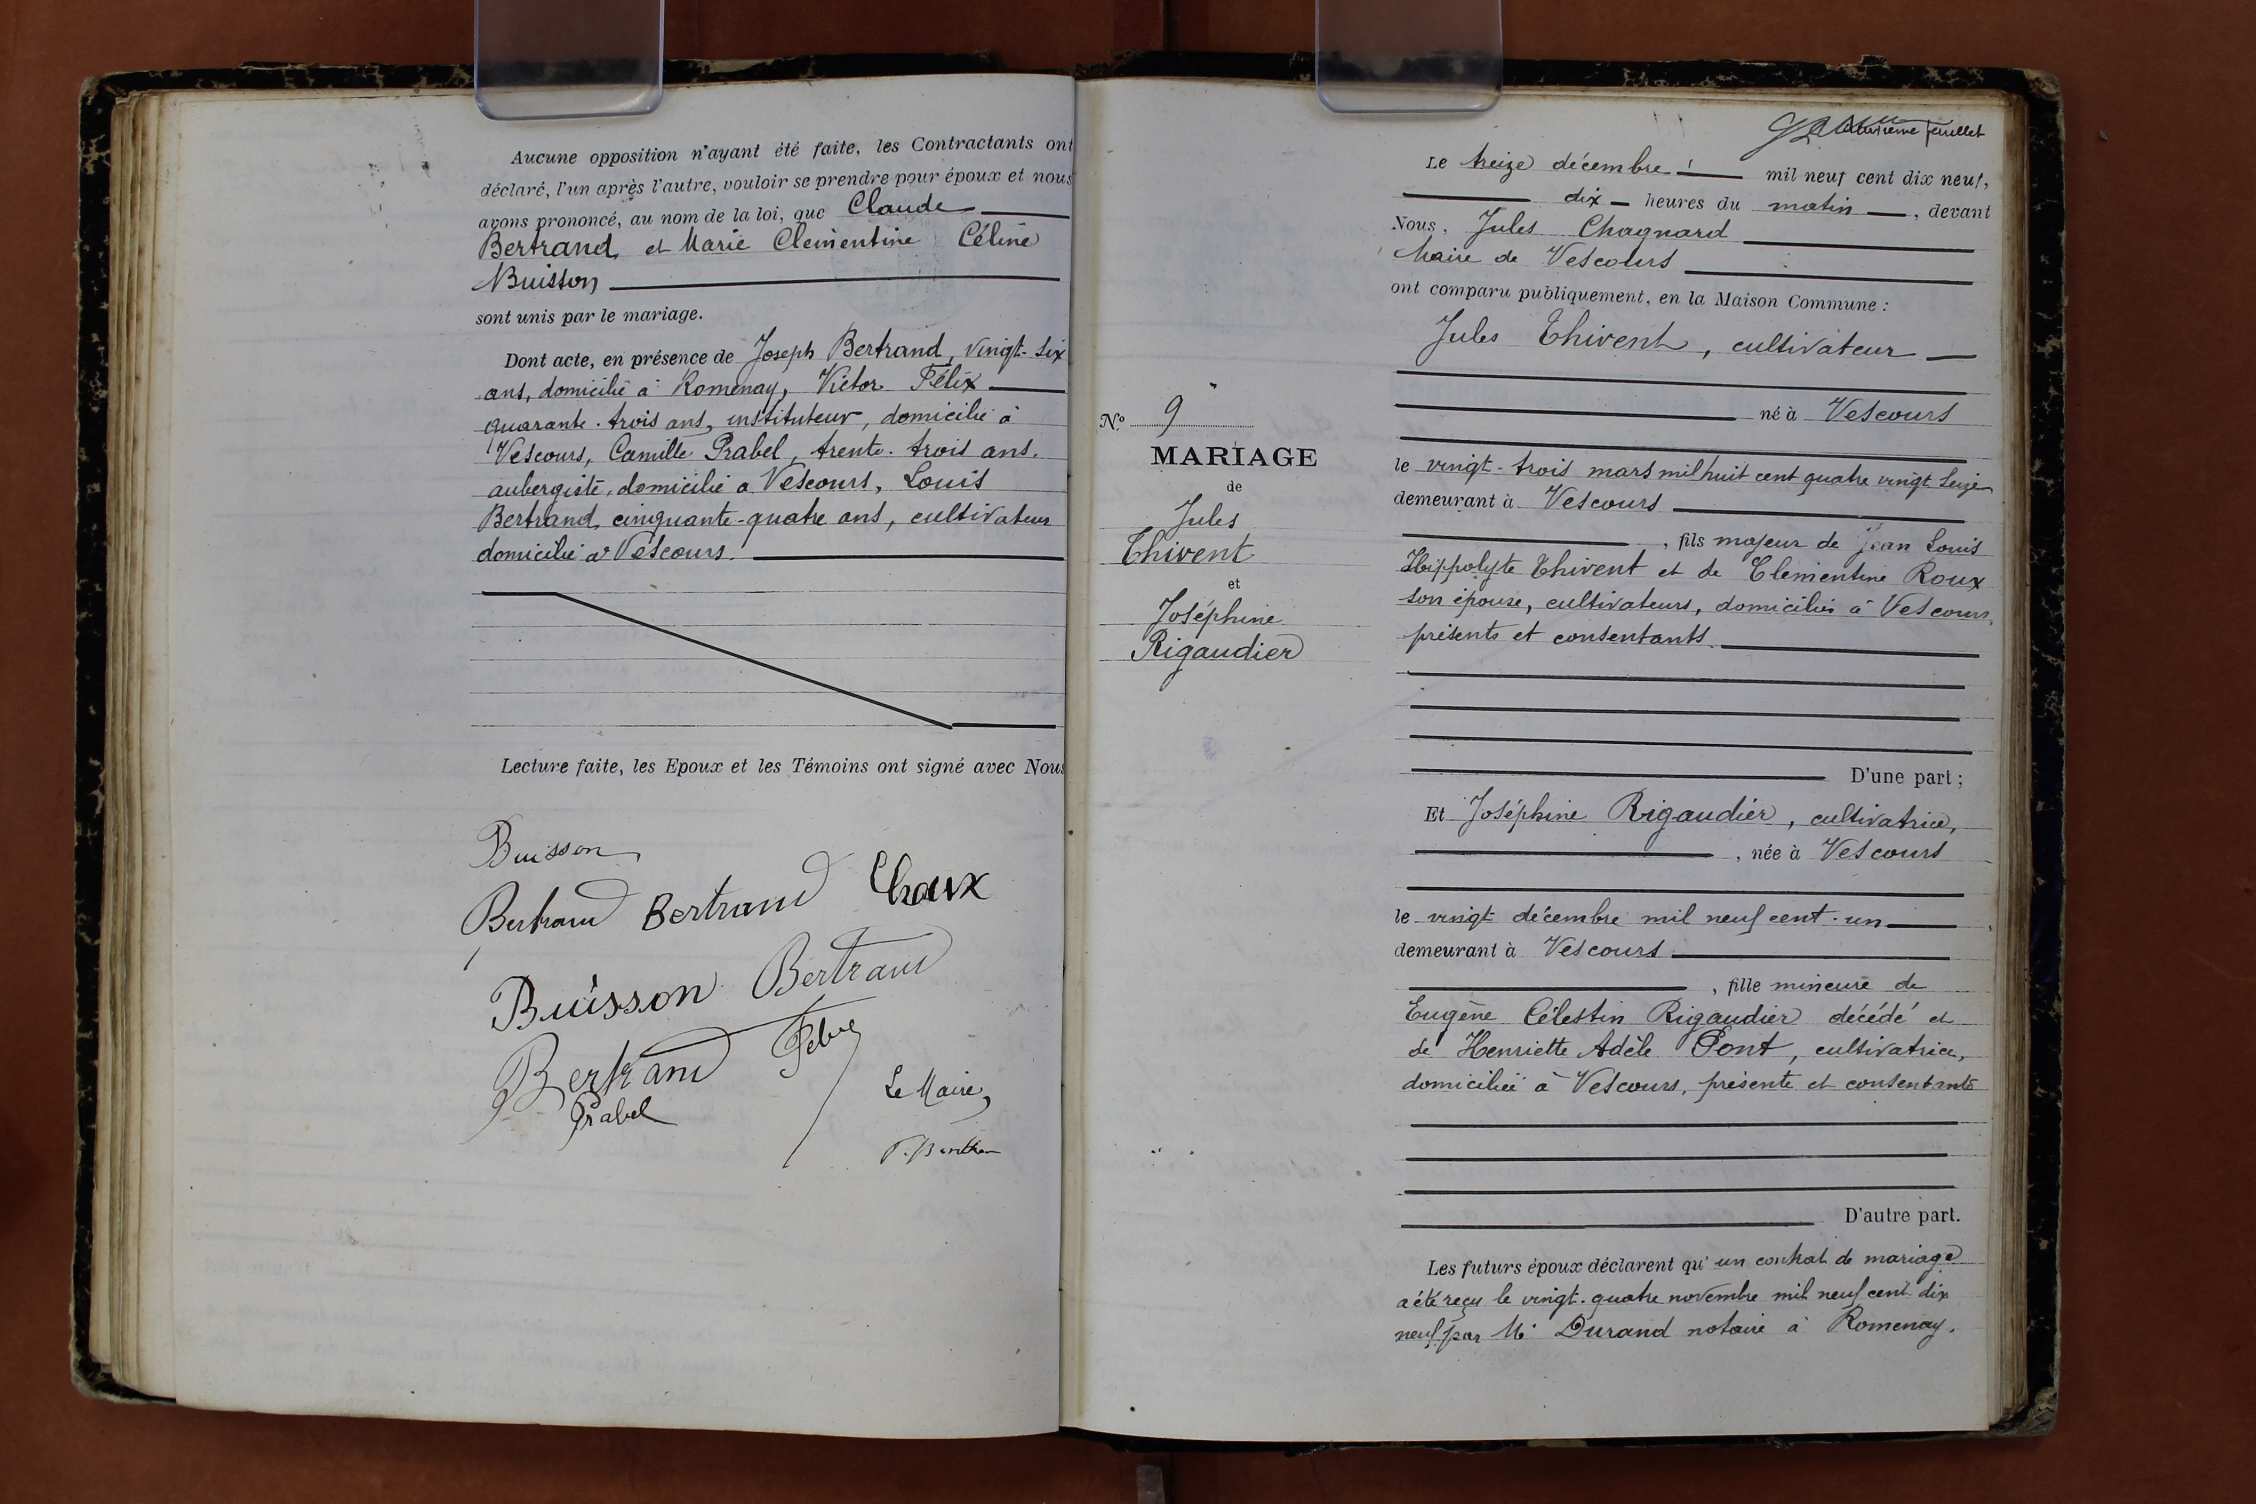 Aucune opposition n'ayant été faite, les Contractants ont
déclaré, l'un après l'autre, vouloir se prendre pour époux et nous
avons prononcé, au nom de la loi, que Claude
Bertrand, et Marie Clementine Céline
Buisson
sont unis par le mariage.
Dont acte, en présence de Joseph Bertrand, vingt-six
ans, domicilié à Romenay, Victor Félix
quarante-trois ans, instituteur, domicilié à
Vescours, Camille Prabel, trente-trois ans.
aubergiste, domicilié à Vescours, Louis
Bertrand, cinquante-quatre ans, cultivateur
domicilié à Vescours.
Lecture faite, les Epoux et les Témoins ont signé avec Nous
Buisson
Bertrand Bertrand Choux
Buisson Bertrand
Bertrand
Prabel
Le Maire,
feuillet
Le treize décembre mil neuf cent dix neuf,
dix heures du matin, devant
Nous, Jules Chagnard
Maire de Vescours
ont comparu publiquement, en la Maison Commune :
Jules Thivent, cultivateur
né à Vescours
le vingt-trois mars mil huit cent quatre vingt seize
demeurant à Vescours
, fils majeur de Jean Louis
Hippolyte Thivent et de Clementine Roux
son épouse, cultivateurs, domiciliés à Vescours,
présents et consentants.
D'une part ;
Et Joséphine Rigaudier, cultivatrice,
, née à Vescours
le vingt décembre mil neuf cent-un
demeurant à Vescours
, fille mineure de
Eugène Célestin Rigaudier décédé et
de Henriette Adèle Pont, cultivatrice,
domiciliée à Vescours, présente et consentante
D'autre part.
Les futurs époux déclarent qu'un contrat de mariage
a été reçu le vingt-quatre novembre mil neuf cent dix
neuf par Me Durand notaire à Romenay.
N° 9
MARIAGE
de
Jules
Thivent
et
Joséphine
Rigaudier